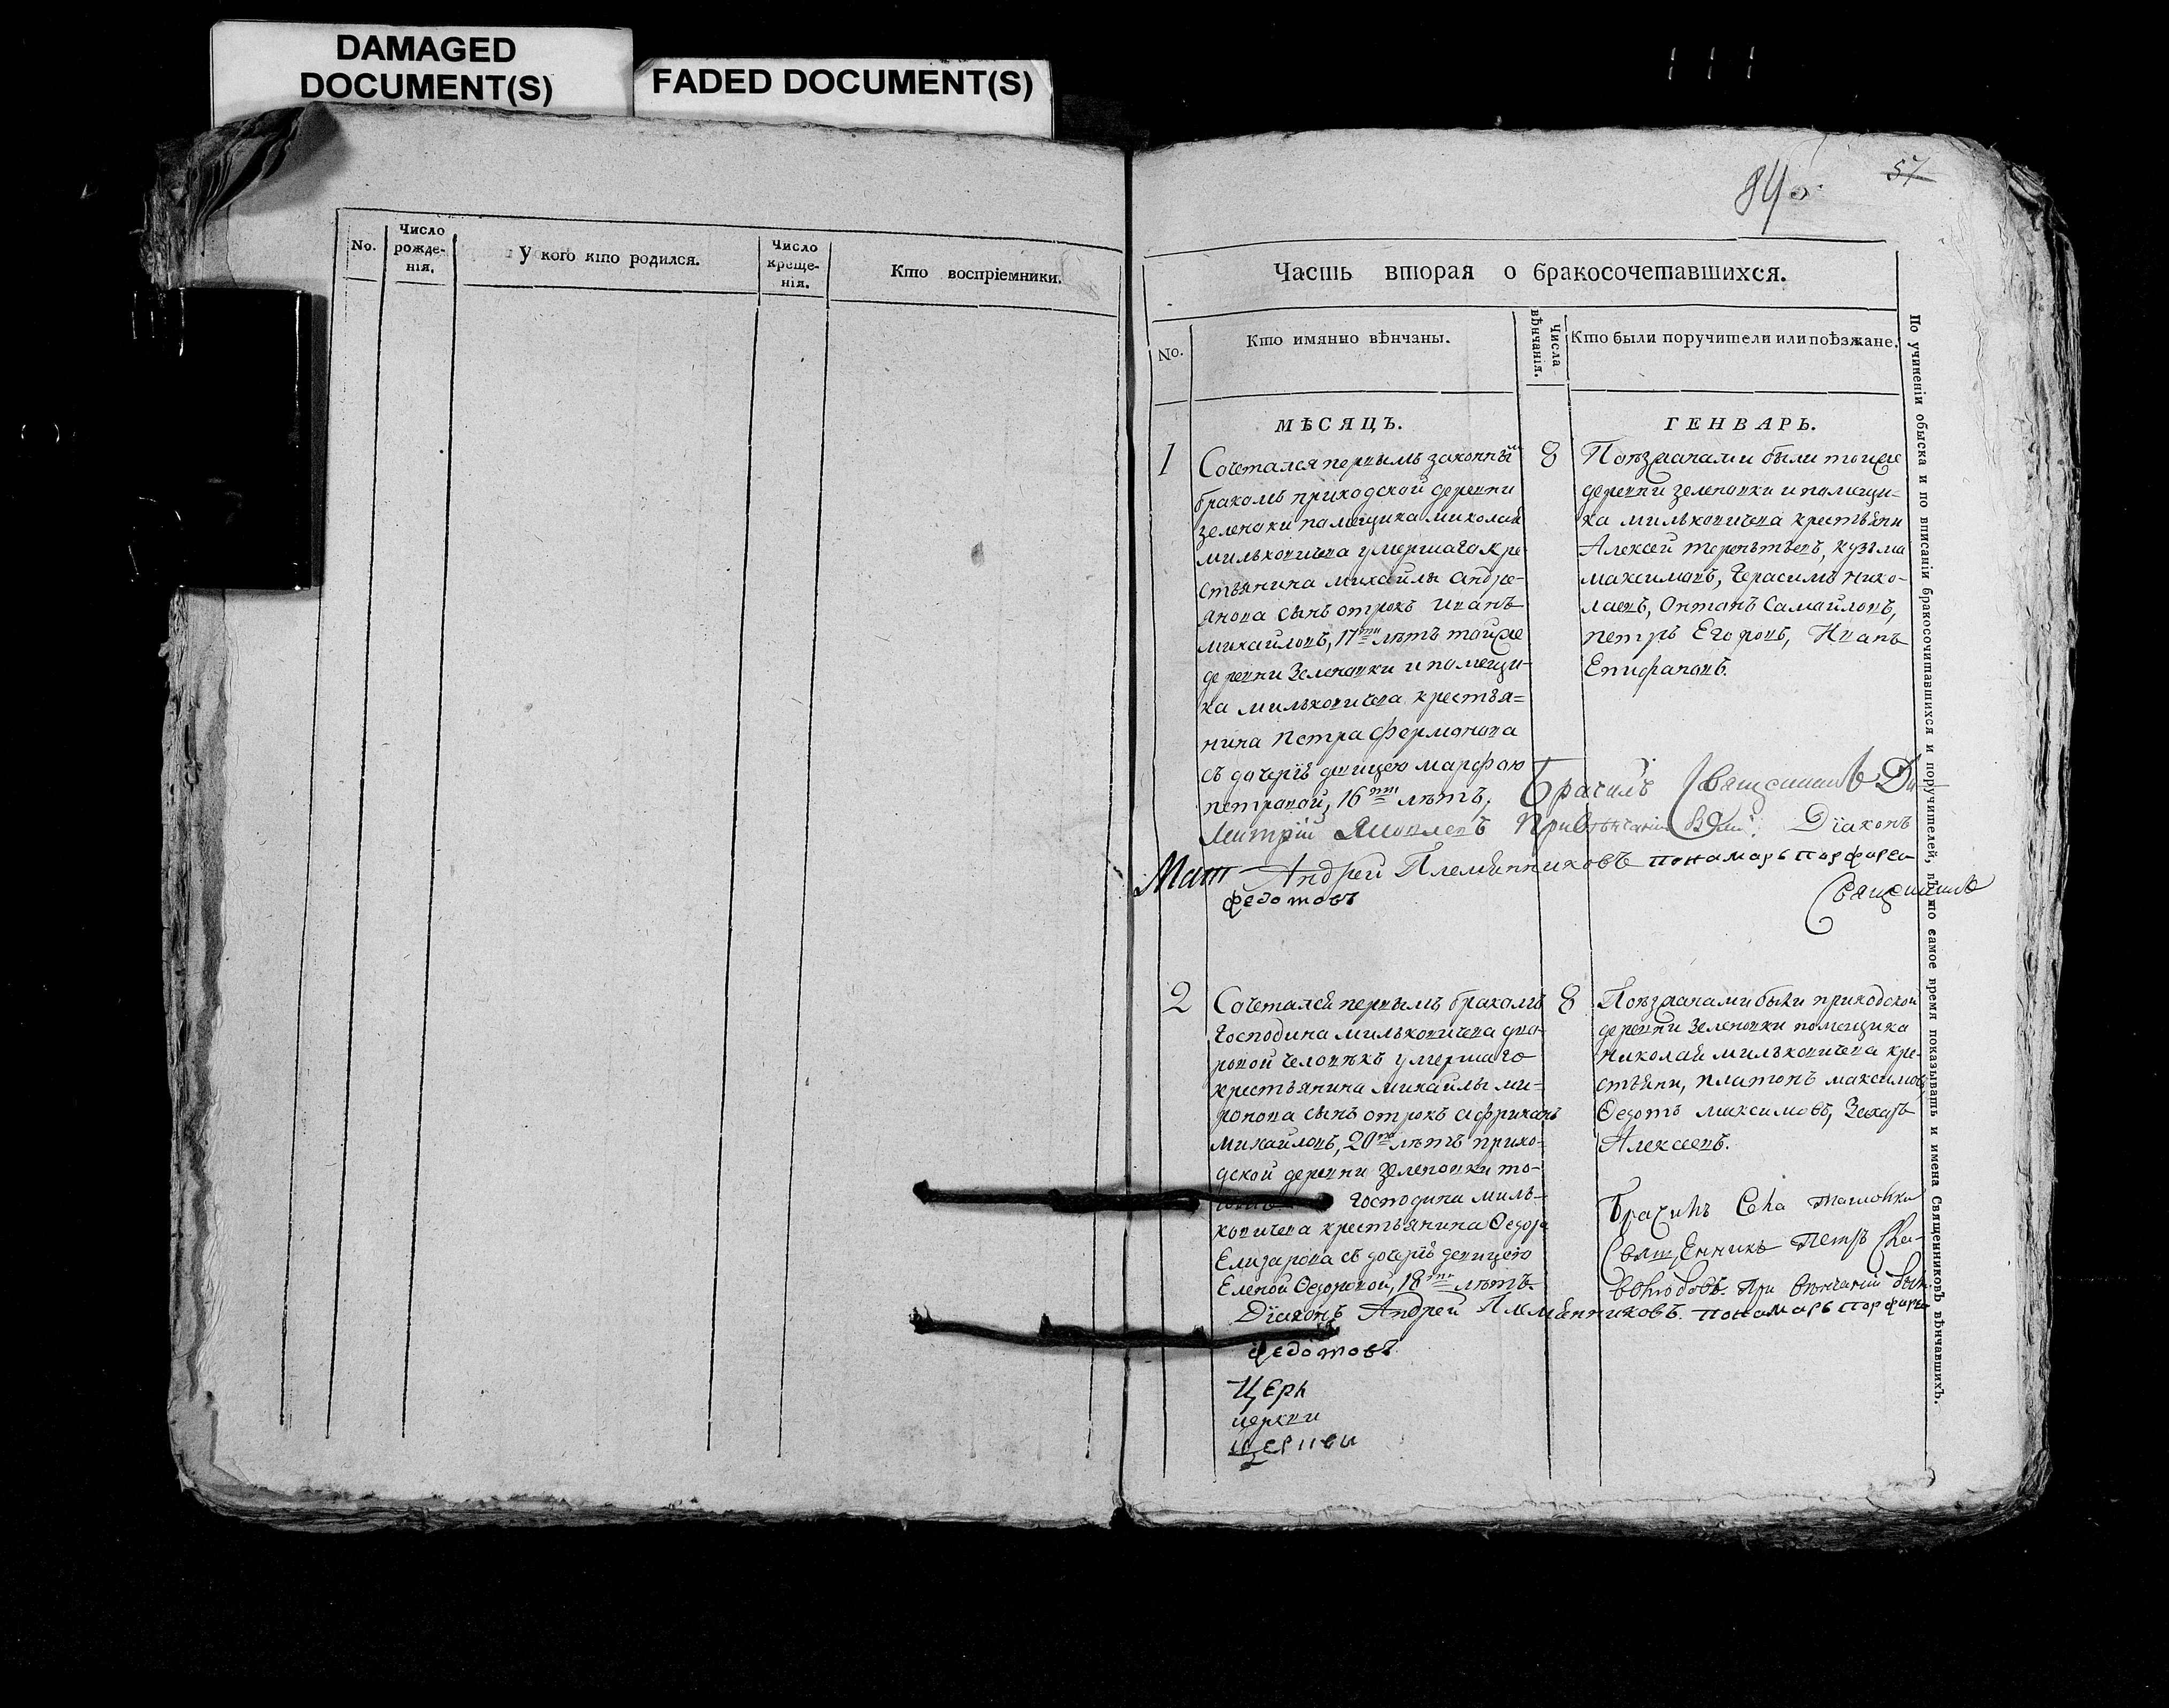 DAMAGED
DOCUMENT(S)
FADED DOCUMENT(S)
No.
Число
рожде-
нія.
У кого кто родился.
Число
креще-
нія.
Кто воспріемники.
84
57
Часть вторая о бракосочетавшихся.
No.
Кто имянно вѣнчаны.
Числа
вѣнчанія.
Кто были поручители или поѣзжане.
МѢСЯЦЪ.
ГЕНВАРЬ.
1
Сочетался первымъ законнымъ
бракомъ приходской деревни
зеленоки помещика миколай
милькович​ева умершаго кре
стьянина михайлы андре-
янова сынъ отрокъ иванъ
михайловъ, 17ти лѣтъ тойже
деревни Зеленовки и помещи-
ка мильковичева крестья=
нина петра фермонова
съ дочерiѣ девицею марфою
петровой, 16ти лѣтъ.
8
Поезжанами были тойже
деревни зеленовки и помещи-
ка мильковичева крестьяни
Алексей терентьевъ, кузьма
максимовъ, Герасимъ нико-
лаевъ, Онтонъ Самойловъ,
петръ Егоровъ, Иванъ
Епифановъ.
Брачилъ Священникъ Ди-
митрiй Яковлевъ При Диаконъ
Андрей Племянниковъ понамарь порфиреи
федотовъ
Священникъ
2
Сочетался первымъ бракомъ
Господина мильковичева дво-
ровой человѣкъ умершаго
крестьянина михайлы ми=
ронова сынъ отрокъ африканъ
михайловъ, 20ти лѣтъ прихо-
дской деревни зеленовки то-
Господина миль-
ковичева крестьянина Ѳедора
Елизарова съ дочерiѣ девицею
Еленой Ѳедоровой, 18ти лѣтъ.
8
Поезжанами были приходской
деревни Зеленовки помещика
николай мильковичева кре-
стьяни, платонъ максимовъ
Ѳедотъ максимовъ, Захаръ
Алексеевъ.
Брачилъ Села
Священникъ Петръ
При венчанiи были
Дiаконъ Андрей Племянниковъ. понамарь порфиреи
федотовъ
Церк
церкви
По учиненіи обыска и по вписаніи бракосочитавшихся и поручителей, въ то самое время показывать и имена Священниковъ вѣнчавшихъ.